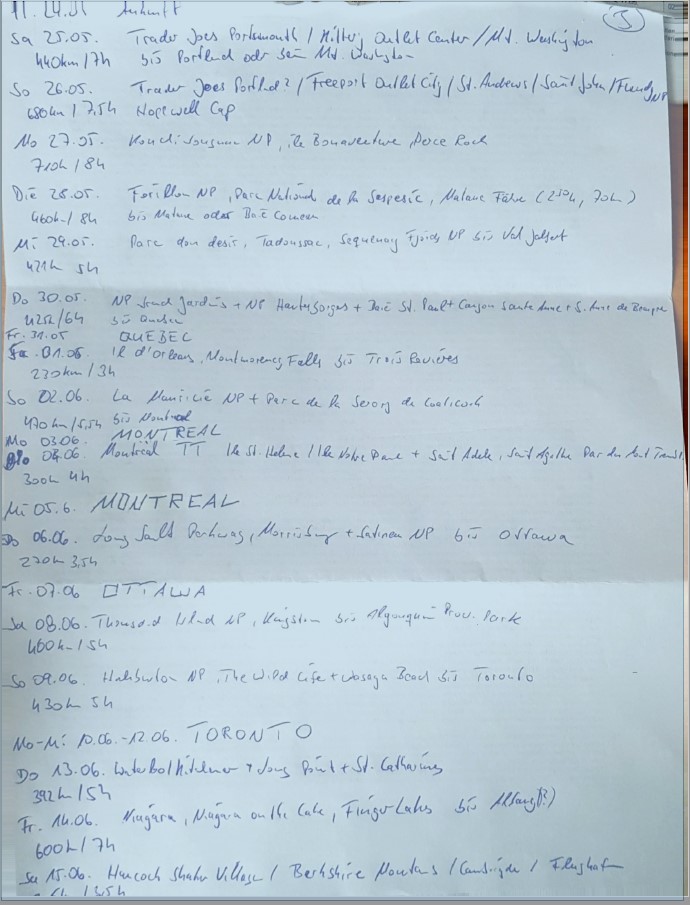 24.05 Ankunft
5
Sa 25.05. Trader Joes Portsmouth / Kittery Outlet Center / Mt. Washington
440km / 7h bis Portland oder Mt. Washington
So 26.05. Trader Joes Portland? / Freeport Outlet City / St. Andrews / Saint John / Fundy NP
680km / 7,5h Hopewell Cap
Mo 27.05. NP, ile Bonaventure, Perce Rock
710h / 8h
Die 28.05. Forillon NP, Parc National de la Gaspesie, Matane Fähre (230h, 70h)
460h / 8h bis Matane oder Baie Comeau
Mi 29.05. Parc, Tadoussac, NP bis Val Jalbert
421h 5h
Do 30.05. NP Jardins + NP + Baie St. Paul + Canyon Sainte Anne + S. Anne de Beaupre
425h / 6h bis Quebec
Fr. 31.05 QUEBEC
01.06. Il d'Orleans, Montmorency Falls bis Trois Rivières
230km / 3h
So 02.06. La Mauricie NP + Parc de la Gorge de Coaticook
470km / 5,5h bis Montreal
Mo 03.06. MONTREAL
04.06. Montreal TT Ile St. Helene / Ile Notre Dame + Saint Adele, Saint Agathe
300h 4h
Mi 05.6. MONTREAL
Do 06.06. Long Sault Parkway, Morrisburg + Gatineau NP bis Ottawa
270h 3,5h
Fr. 07.06 OTTAWA
Sa 08.06. Thousand Island NP, Kingston bis Algonquin Prov. Park
460h / 5h
So 09.06. Haliburton NP, The Wild Life + Wasaga Beach bis Toronto
430h 5h
Mo-Mi 10.06.-12.06. TORONTO
Do 13.06. + Long Point + St. Catharines
392h / 5h
Fr. 14.06. Niagara, Niagara on the Lake, Finger Lakes bis
600h / 7h
Sa 15.06. Hancock Shaker Village / Berkshire Mountains / Cambridge / Flughafen
3,5h